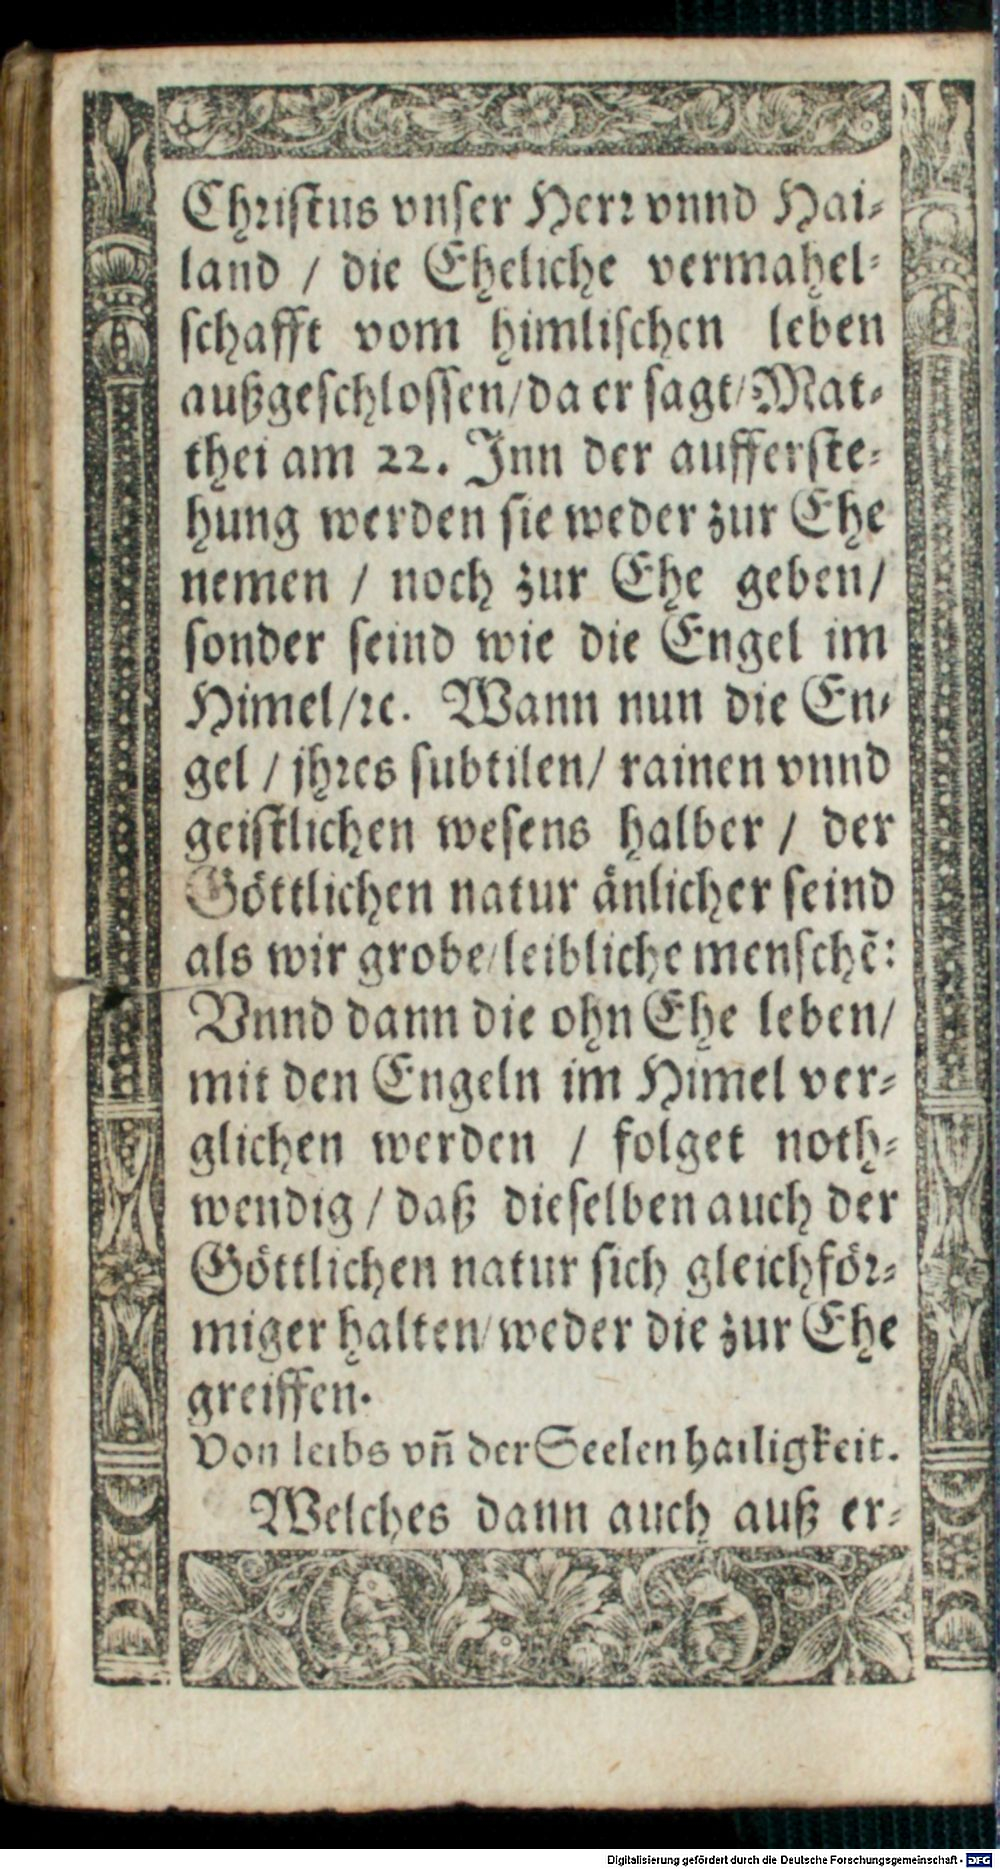 Christus vnser Herr vnnd Hai-
land / die Eheliche vermahel-
schafft vom himlischen leben
außgeschlossen/da er sagt/Mat-
thei am 22. Inn der aufferste-
hung werden sie weder zur Ehe
nemen / noch zur Ehe geben/
sonder seind wie die Engel im
Himel/ꝛc. Wann nun die En-
gel / jhres subtilen/ rainen vnnd
geistlichen wesens halber / der
Göttlichen natur änlicher seind
als wir grobe/leibliche menschẽ:
Vnnd dann die ohn Ehe leben/
mit den Engeln im Himel ver-
glichen werden / folget noth-
wendig / daß dieselben auch der
Göttlichen natur sich gleichför-
miger halten/weder die zur Ehe
greiffen.
Von leibs vñ der Seelen hailigkeit.
Welches dann auch auß er-
Digitalisierung gefördert durch die Deutsche Forschungsgemeinschaft - DFG